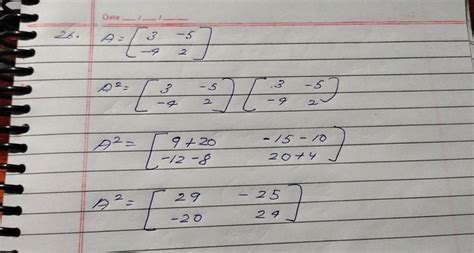 Date __/__/__
26. A = [ 3 -5
-4 2 ]
A² = [ 3 -5
-4 2 ] [ 3 -5
-4 2 ]
A² = [ 9+20 -15-10
-12-8 20+4 ]
A² = [ 29 -25
-20 24 ]